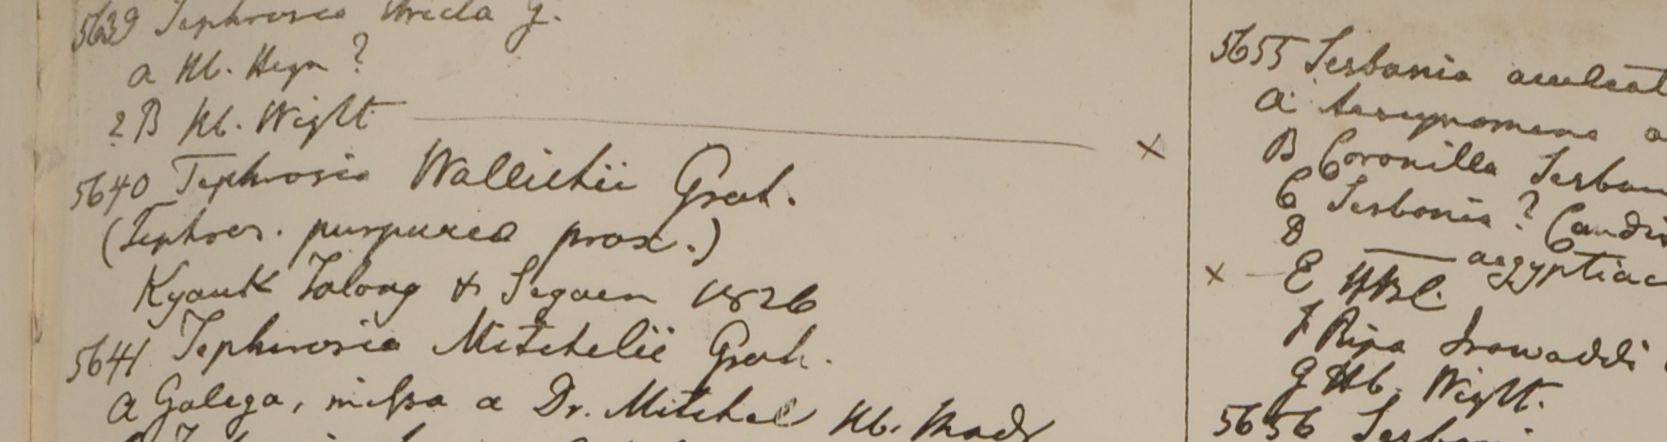 5639 Tephrosia stricta G.
a Hb. Heyn ?
? B Hb. Wight
5640 Tephrosia Wallichii Grah.
(Tephros. purpurea prox.)
Kyauk Talong & Segaen 1826
5641 Tephrosia Mitchelii Grah.
a Galega, missa a Dr. Mitchel Hb. Madr
5655 Sesbania aculeat
a Aeschynomene a
B Coronilla Sesban
C Sesbania ? Candi
D — aegyptiac
E HBC.
F Ripa Irawaddi
G Hb. Wight.
5656 Sesbani